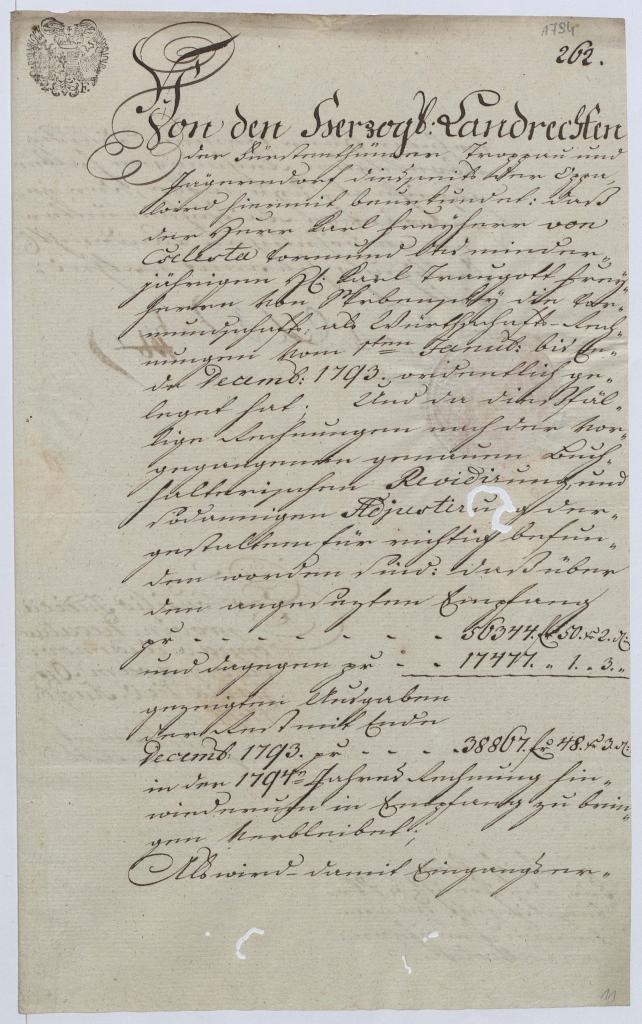 1794
262.
2 F.
Von den Herzogl: Landrechten
der Fürstenthümer Troppau und
Jägerndorf diesseits der Oppa,
wird hiermit beurkundet: daß
der Herr Karl Freyherr von
Cselesta vormund des minder-
jährigen H: Karl Traugott Frey-
herrn von Skrbensky die Vor-
mundschafts, als Würthschafts-Rech-
nungen vom 1ten Janui: bis En-
de Decemb: 1793. ordentlich ge-
leget hat; Und da diesfäl-
lige Rechnungen nach der vor-
gegangenen genauen Buch-
halterischen Revidirung, und
sodannigen Adjustirung der-
gestalten für richtig befun-
den worden sind: daß über
den angesezten Empfang
pr - - - - - - - 56344. fr 50. xr 2. d:
und dagegen pr - - 17477. " 1. " 3. "
gezeigten Ausgaben
der Rest mit Ende
Decemb: 1793. pr - - - - 38867. fr 48. xr 3. d:
in der 1794er Jahres Rechnung hin-
wiederum in Empfang zu brin-
gen verbleibet;
Als wird damit Eingangser-
11